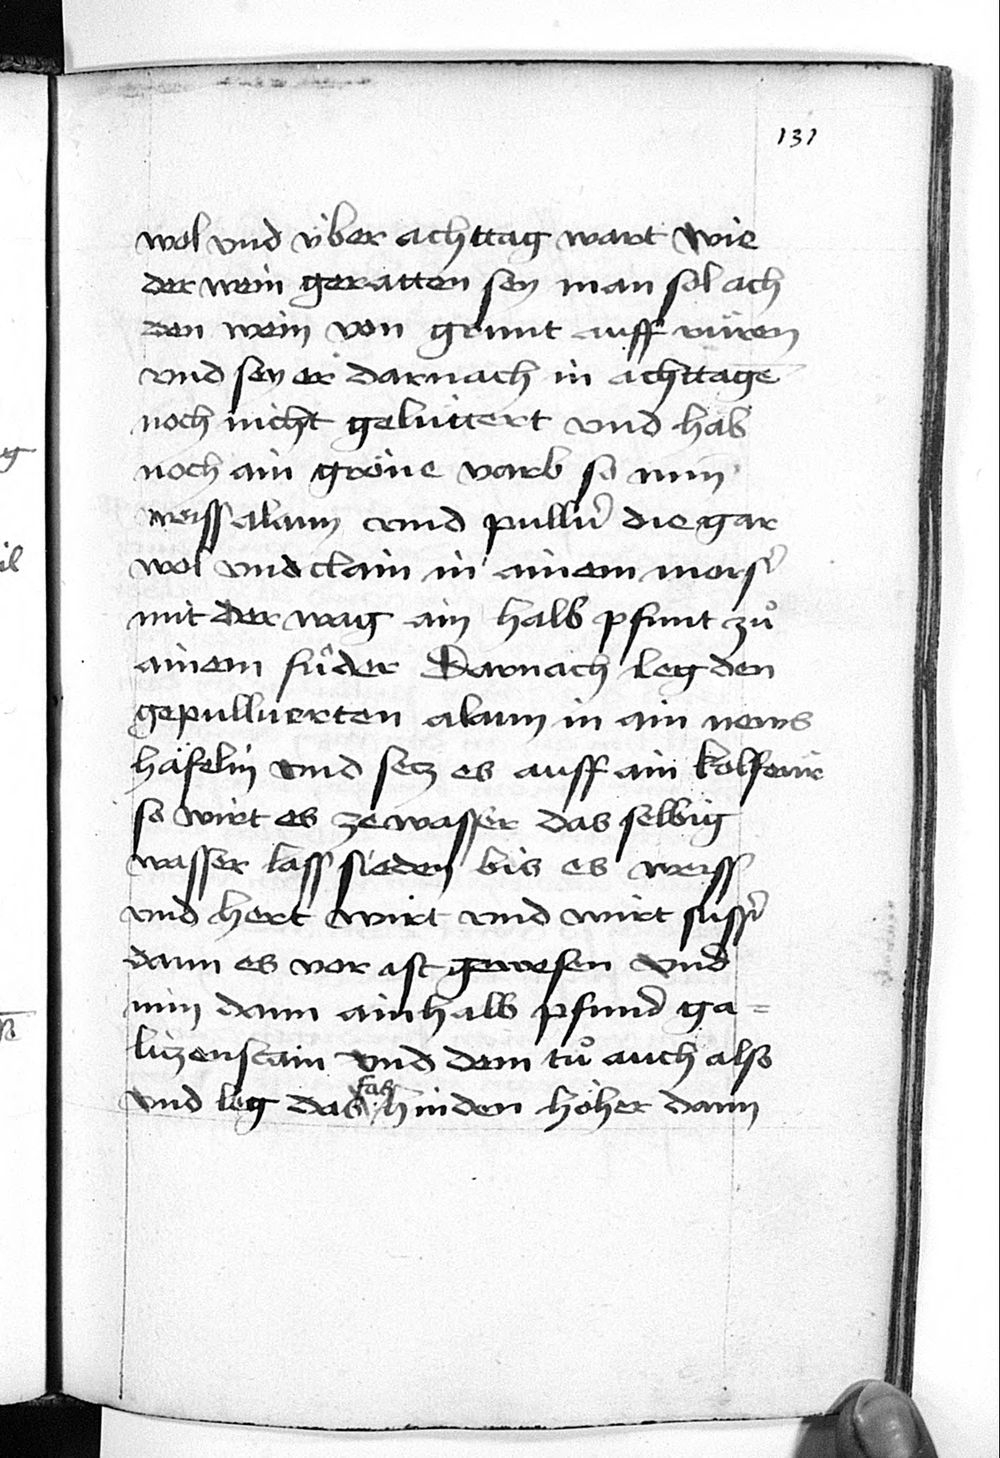 131
wol vnd v̈ber achttag wart wie
der wein geratten sey man sol ach
den wein von grunt auff rüren
vnd sey er darnach in achttagē
noch nicht gelüttert vnd hab
noch ain gröne varb so nim
weiss alaun vnd pulluͤ die gar
wol vnd clain in ainem morsˀ
mit der wag ain halb pfunt zuͦ
ainem fuͦder Darnach leg den
gepulluerten alaun in ain news
häfelin vnd setz es auff ain kolfeur
so wirt es ze wasser das selbig
wasser lass sieden bis es weiss
vnd hert wirt vnd wirt sussˀ
dann es vor ist gewesen vnd
nim dann ain halb pfund ga=
litzenstain vnd dem tuͦ auch also
vnd leg das fas hinden höher dann